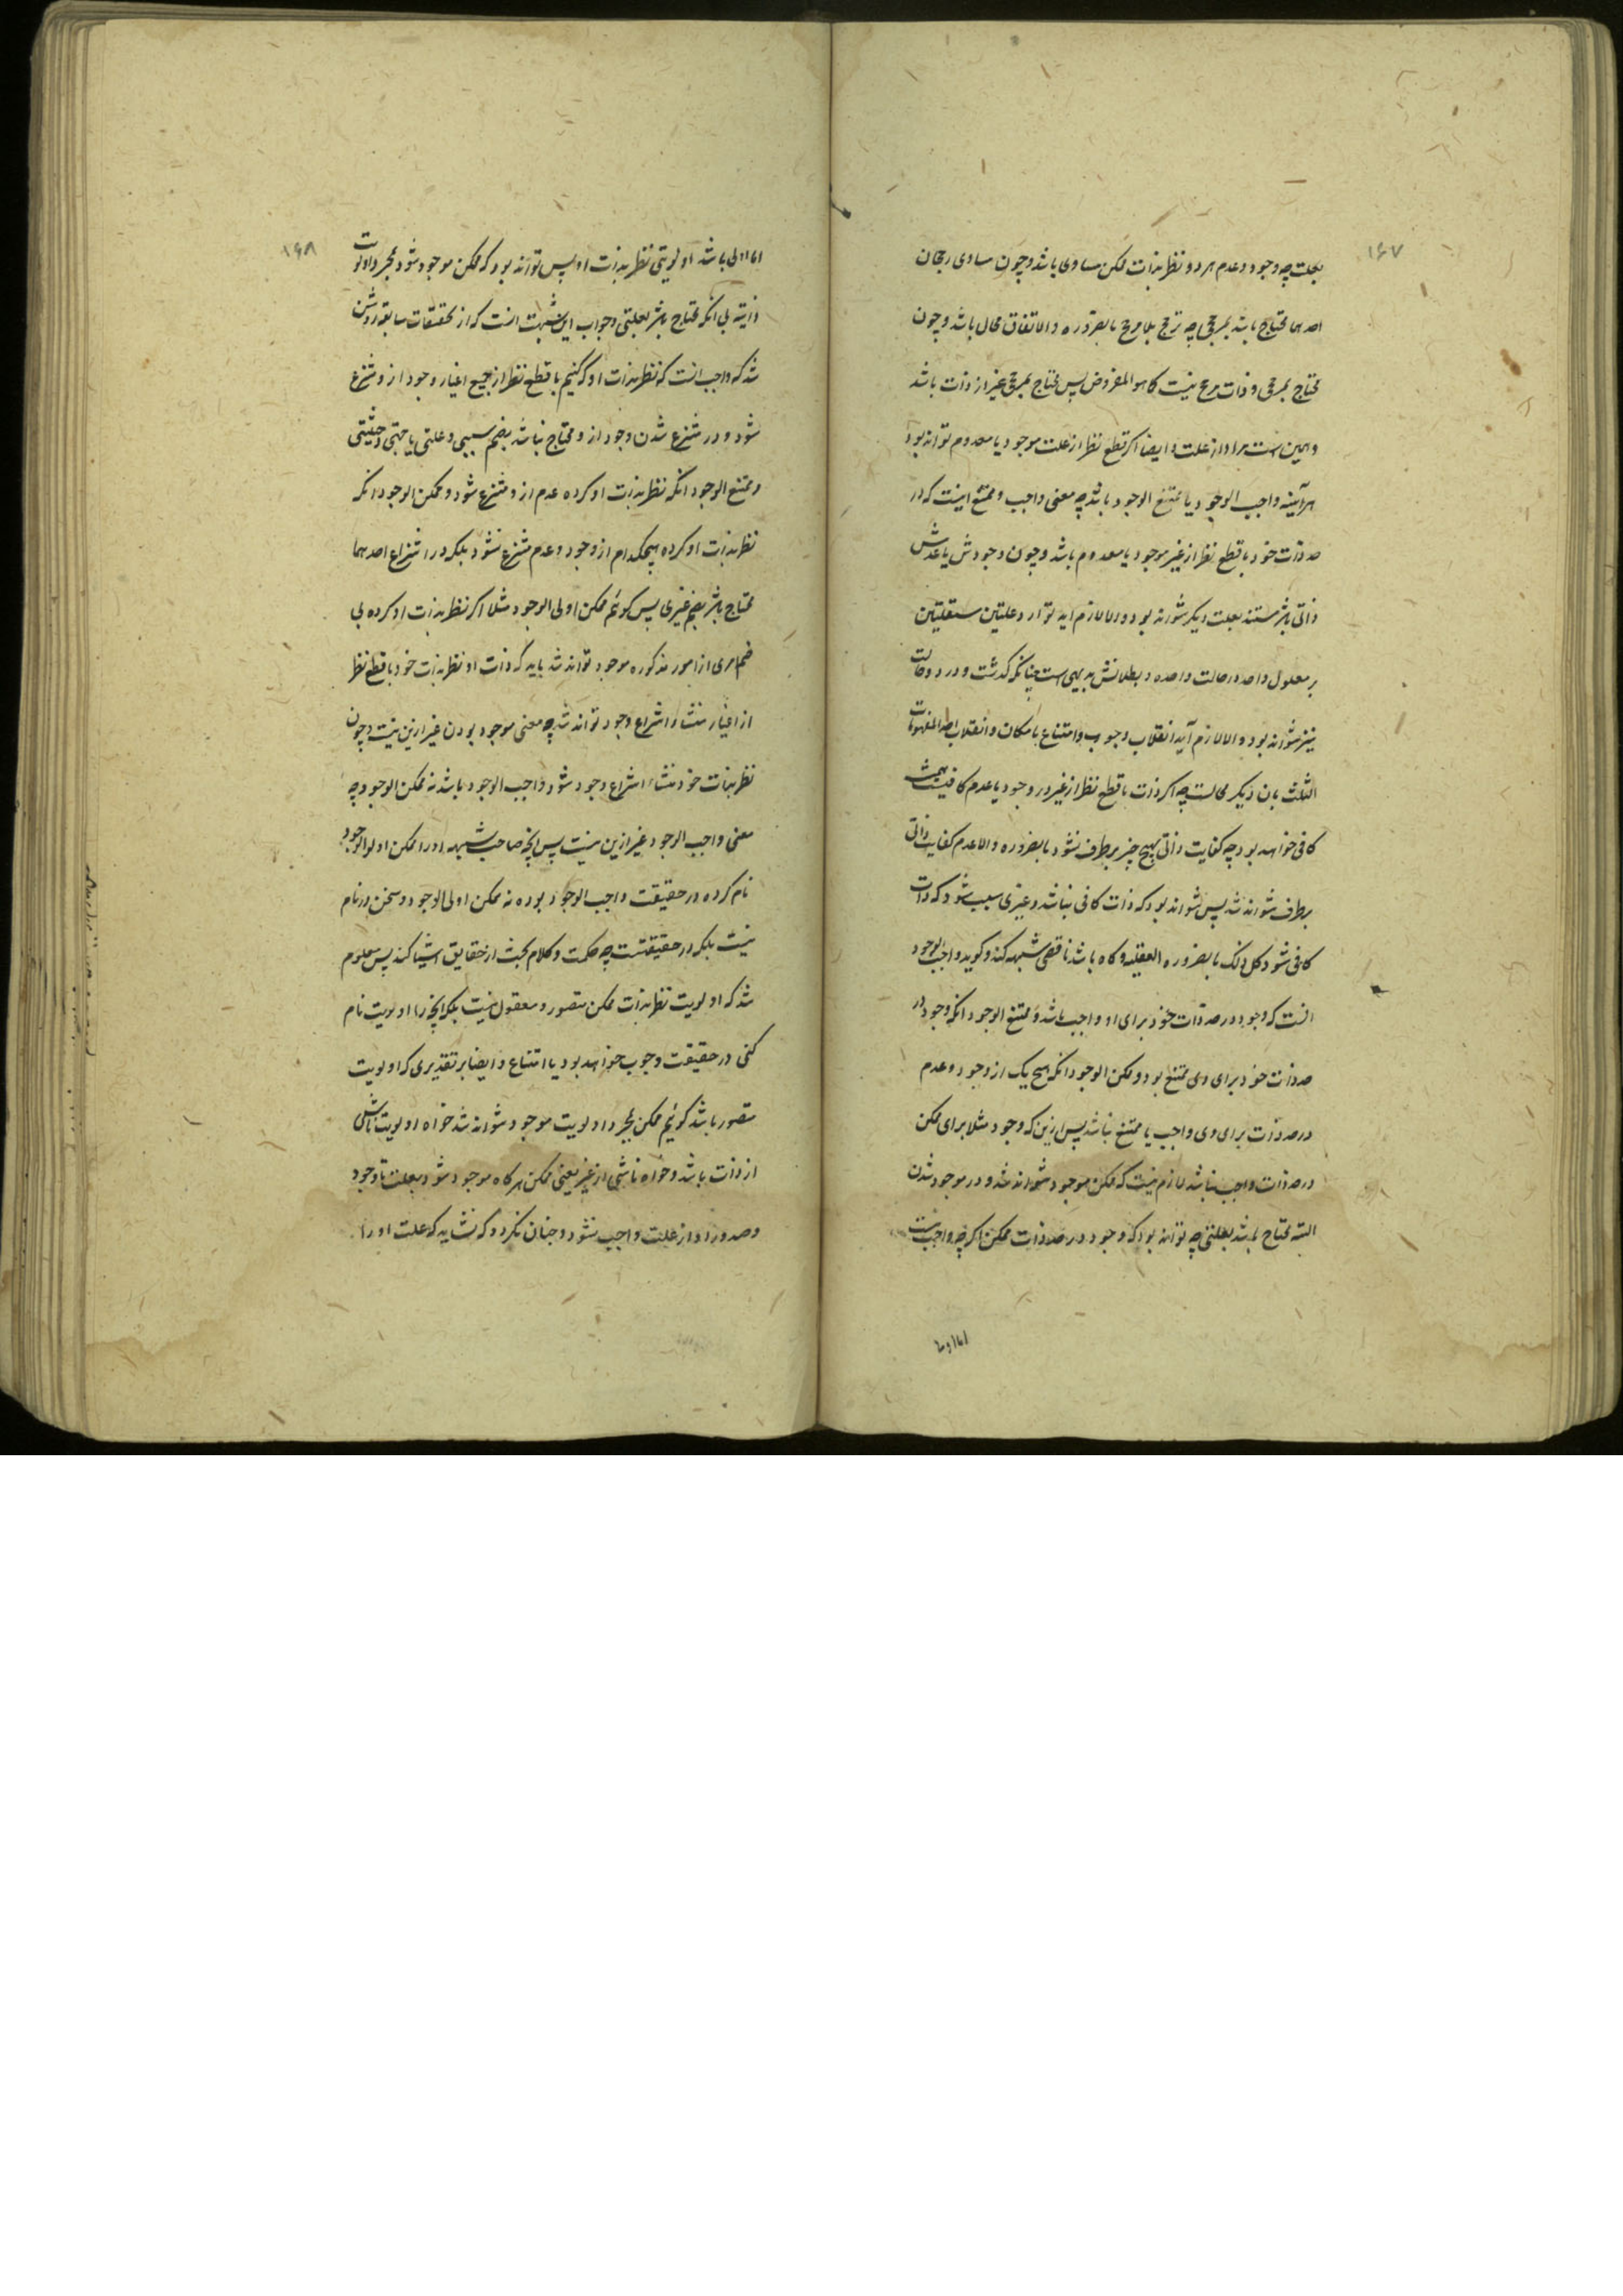 ۱۶۷
بعلت چه وجود و عدم هر دو نظر بذات ممکن مساوی باشد و چون مساوی رجحان
احدهما محتاج باشد بمرجحی چه ترجح بلا مرجح بالضروره و الاتفاق محال باشد و چون
محتاج بمرجحی و ذات مرجح نیست کما هو المفروض پس محتاج بمرجحی غیر از ذات باشد
و همین است مراد از علت و ایضا اکر قطع نظر از علت موجود یا معدوم تواند بود
هرآینه واجب الوجود یا ممتنع الوجود باشد چه معنی واجب و ممتنع اینست که در
حد ذات خود با قطع نظر از غیر موجود یا معدوم باشد و چون وجودش یا عدمش
ذاتی باشد مستند بعلت دیکر نتواند بود و الا لازم اید توارد علتین مستقلتین
بر معلول واحد در حالت واحده و بطلانش بدیهی است چنانکه کذشت و در دو حالت
نیز نتواند بود و الا لازم آید انقلاب وجوب و امتناع بامکان و انقلاب احد المفهومات
الثلث بان دیکر محالست چه اکر ذات با قطع نظر از غیر در وجود یا عدم کافیست همیشه
کافی خواهد بود چه کفایت ذاتی بهیچ چیز برطرف نشود بالضروره و الا عدم کفایت ذاتی
برطرف نتواند شد پس نتواند بود که ذات کافی نباشد و غیری سبب شود که ذات
کافی شود کل ذلک بالضروره العقلیه و کاه باشد ناقصی شبهه کند و کوید واجب الوجود
انست که وجود در حد ذات خود برای او واجب باشد و ممتنع الوجود انکه وجود در
حد ذات خود برای وی ممتنع بود و ممکن الوجود انکه هیچ یک از وجود و عدم
در حد ذات برای وی واجب یا ممتنع نباشد پس ازین که وجود مثلا برای ممکن
در حد ذات واجب نباشد لازم نیست که ممکن موجود نتواند شد و در موجود شدن
البته محتاج باشد بعلتی چه تواند بود که وجود در حد ذات ممکن اکر چه واجب نیست
اما اولی
۱۶۸
اما اولی باشد اولویتی نظر بذات او پس تواند بود که ممکن موجود شود بمجرد اولویت
ذاتیه بی انکه محتاج باشد بعلتی و جواب این شبهت انست که از تحقیقات سابقه روشن
شد که واجب انست که نظر بذات او که کنیم با قطع نظر از جمیع اغیار وجود از و منتزع
شود و در منتزع شدن وجود از و محتاج نباشد بضم سببی و علتی یا جهتی و حیثیتی
و ممتنع الوجود انکه نظر بذات او کرده عدم از و منتزع شود و ممکن الوجود انکه
نظر بذات او کرده هیچکدام از وجود و عدم منتزع نشود بلکه در انتزاع احدهما
محتاج باشد بضم غیری پس کوئیم ممکن اولی الوجود مثلا اکر نظر بذات او کرده بی
ضم امری از امور مذکوره موجود تواند شد باید که ذات او نظر بذات خود با قطع نظر
از اغیار منشاء انتزاع وجود تواند شد چه معنی موجود بودن غیر ازین نیست و چون
نظر بذات خود منشاء انتزاع وجود شود واجب الوجود باشد نه ممکن الوجود چه
معنی واجب الوجود غیر ازین نیست پس انچه صاحب شبهه او را ممکن اولی الوجود
نام کرده در حقیقت واجب الوجود بوده نه ممکن اولی الوجود و سخن در نام
نیست بلکه در حقیقتست چه حکمت و کلام بحث از حقایق اشیا کند پس معلوم
شد که اولویت نظر بذات ممکن متصور و معقول نیست بلکه انچه را اولویت نام
کنی در حقیقت وجوب خواهد بود یا امتناع و ایضا بر تقدیری که اولویت
متصور باشد کوئیم ممکن بمجرد اولویت موجود نتواند شد خواه اولویت ناشی
از ذات باشد و خواه ناشی از غیر یعنی ممکن هر کاه موجود شود بعلت تا وجود
و صدور او از علت واجب نشود و چنان نکردد که نشاید که علت او را